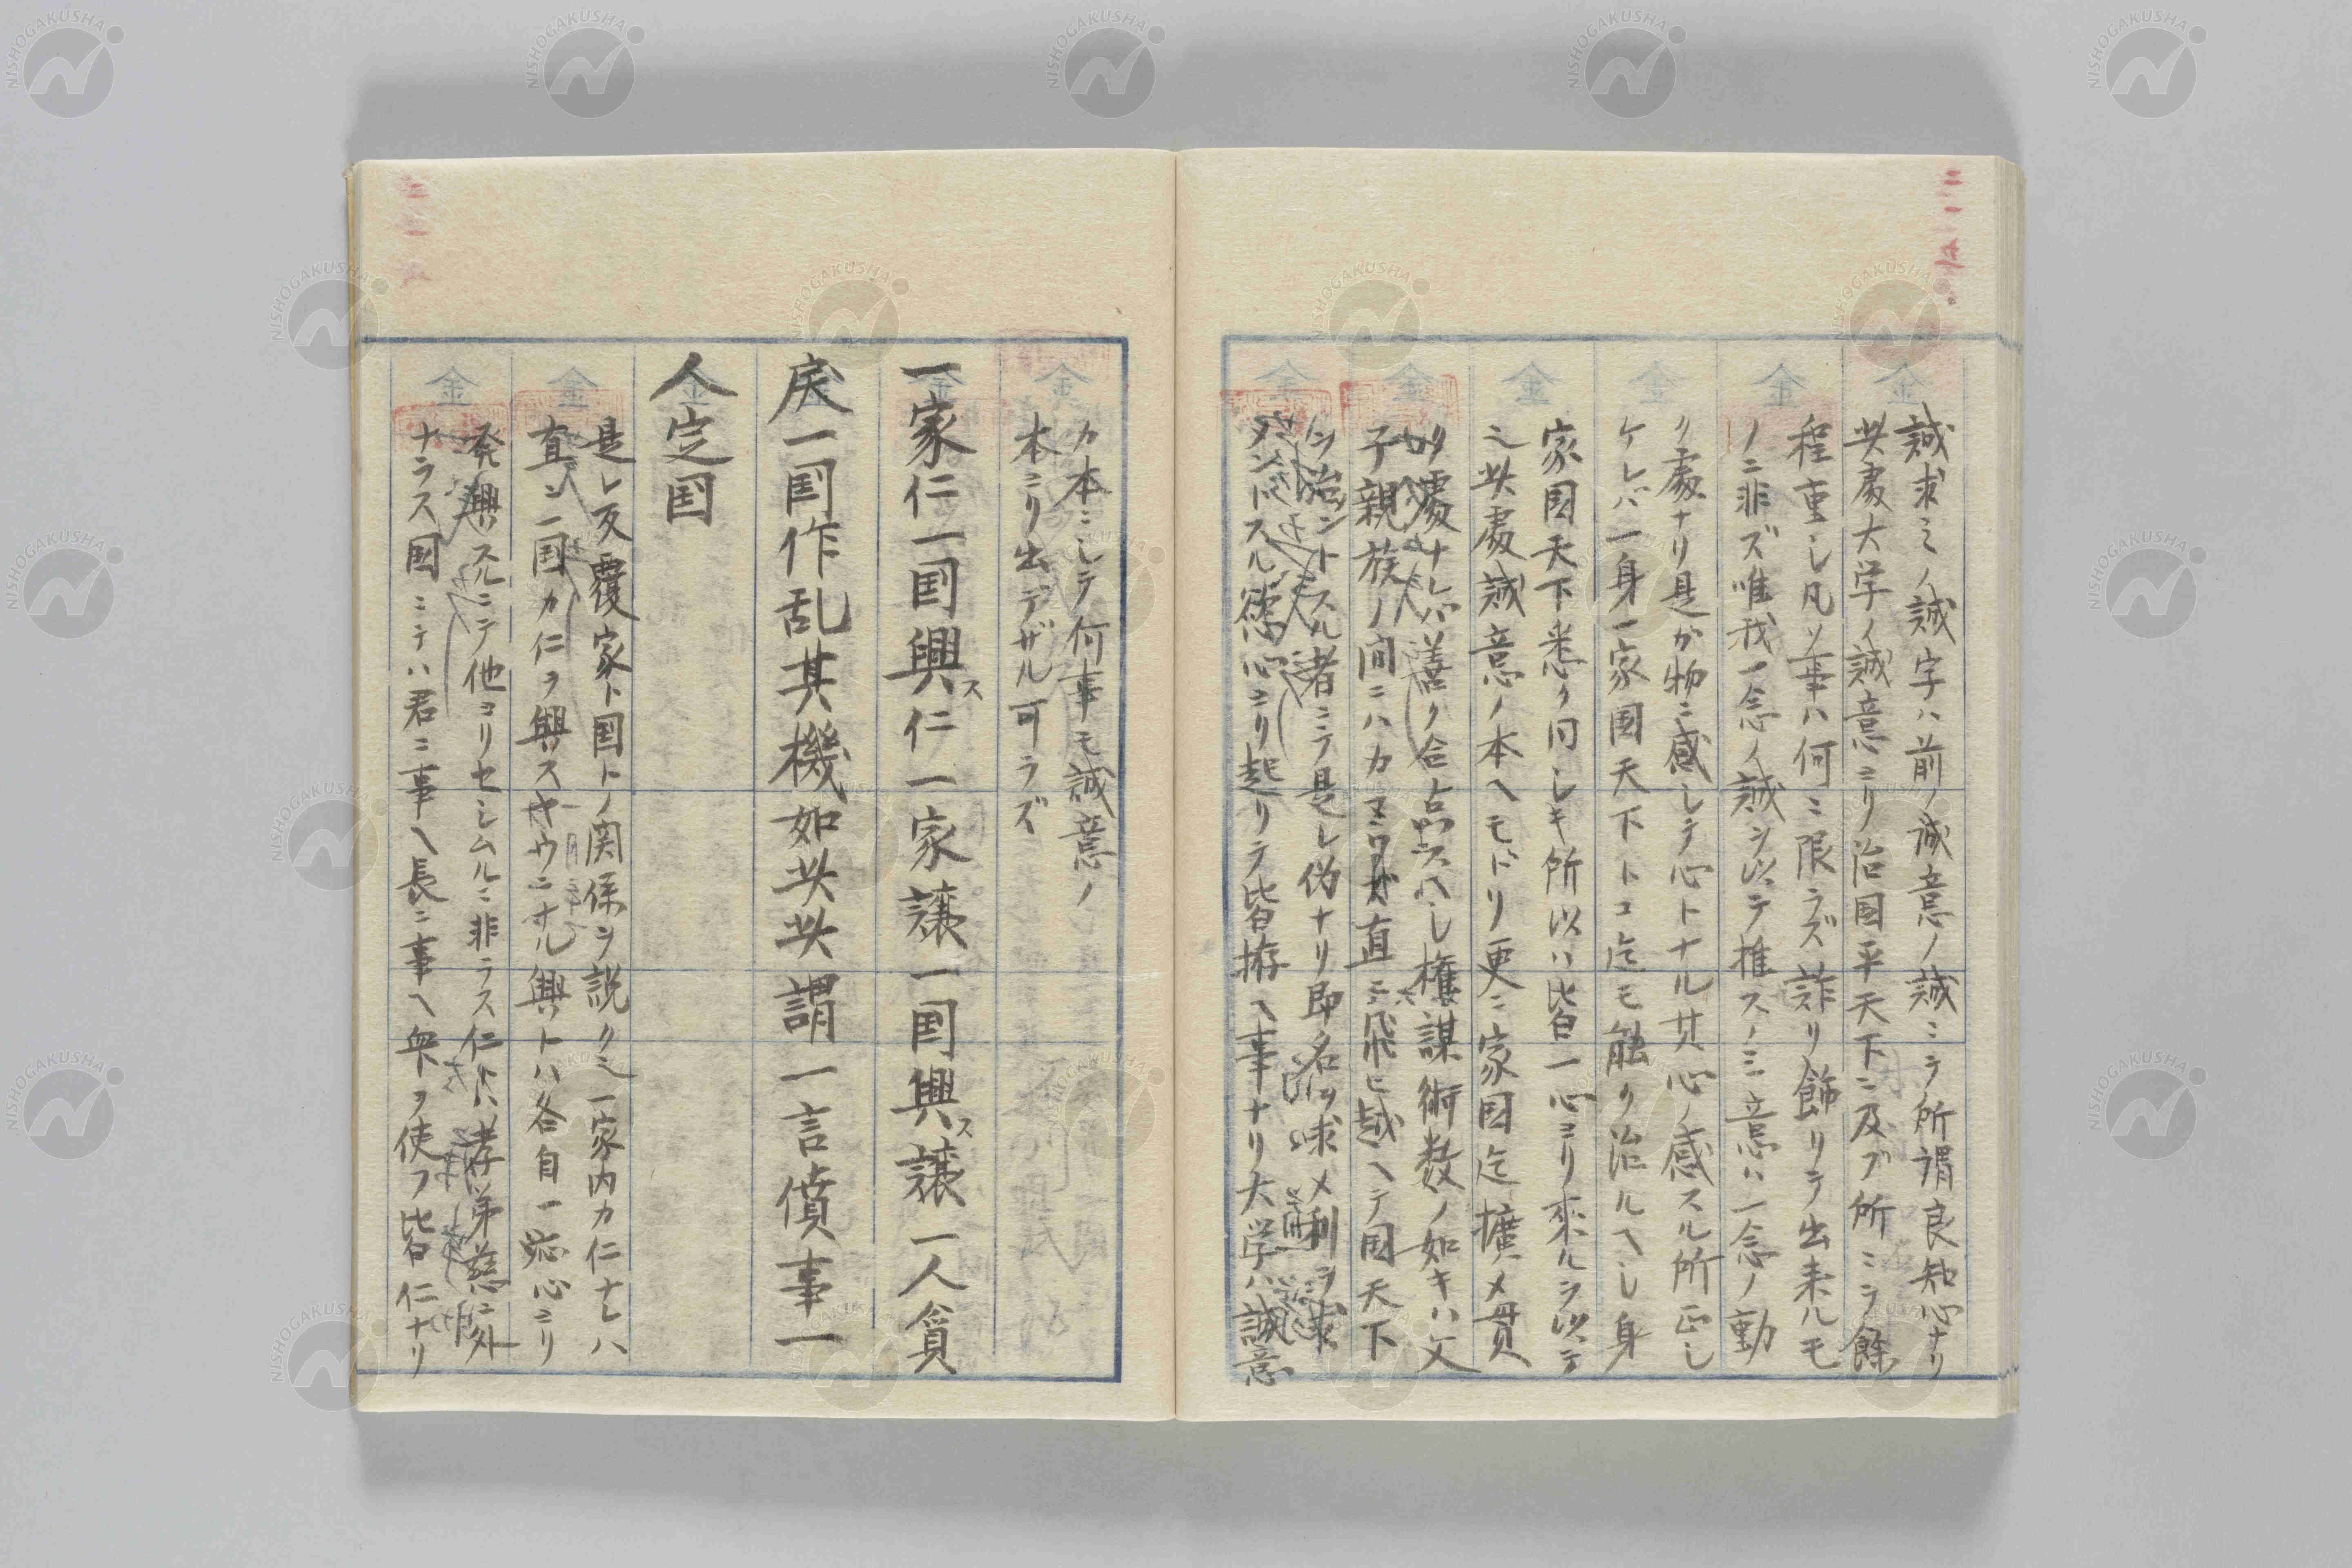 誠求ミノ誠字ハ前ノ誠意ノ誠ニテ所謂良知心ナリ
此處大学ノ誠意ヨリ治国平天下ニ及ブ所ニテ餘
程重シ凡ソ事ハ何ニ限ラズ詐リ飾リテ出来ルモ
ノニ非ズ唯我一念ノ誠ヲ以テ推スノミ意ハ一念ノ動
ク處ナリ是が物ニ感シテ心トナル其心ノ感スル所正シ
ケレバ一身一家国天下トコ迄モ融リ治ルヘシ身
家国天下悉ク同シキ所以ハ皆一心ヨリ来ルヲ以テ
ニ此處誠意ノ本ヘモドリ更ニ家国迄擴メ貫
ク處ナレバ善ク合点スヘシ権謀術数ノ如キハ父
子親族ノ間ニハカマワズ直ニ飛ヒ越ヘテ国天下
ヲ治ントスル者ニテ是レ偽ナリ即名ヲ求メ利ヲ求
メントスル慾心ヨリ起リテ皆拵ヘ事ナリ大学ハ誠意
カ本ニシテ何事モ誠意ノ
本ヨリ出デザル可ラズ
一家仁一国興ス仁一家譲一国興ス譲一人貪
戻一国作乱其機如此此謂一言僨事一
人定国
是レ反覆家ト国トノ関係ヲ説クニ一家内カ仁ナレハ
直ニ一国カ仁ヲ興スヤウニナル興トハ各自一応心ヨリ
発興スルニテ他ヨリセシムルニ非ラス仁トハ孝弟慈ニ外
ナラス国ニテハ君ニ事ヘ長ニ事ヘ衆ヲ使フ皆仁ナリ
NISHOGAKUSHA